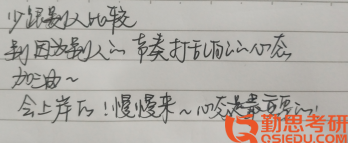 少跟别人比较
别因为别人的节奏打乱自己的心态
加油~
会上岸的！慢慢来~心态是最重要的！
勤思考研
QINGSIKAOYAN.COM